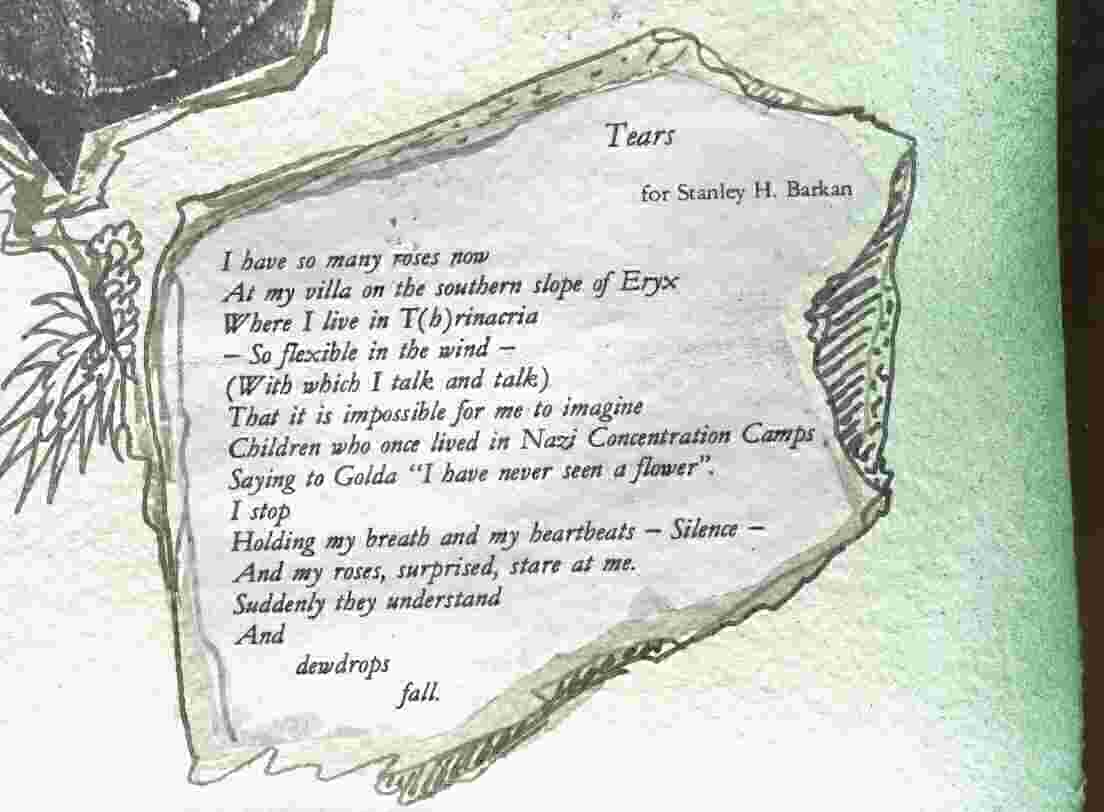 Tears
for Stanley H. Barkan
I have so many roses now
At my villa on the southern slope of Eryx
Where I live in T(h)rinacria
– So flexible in the wind –
(With which I talk and talk)
That it is impossible for me to imagine
Children who once lived in Nazi Concentration Camps
Saying to Golda “I have never seen a flower”.
I stop
Holding my breath and my heartbeats – Silence –
And my roses, surprised, stare at me.
Suddenly they understand
And
dewdrops
fall.